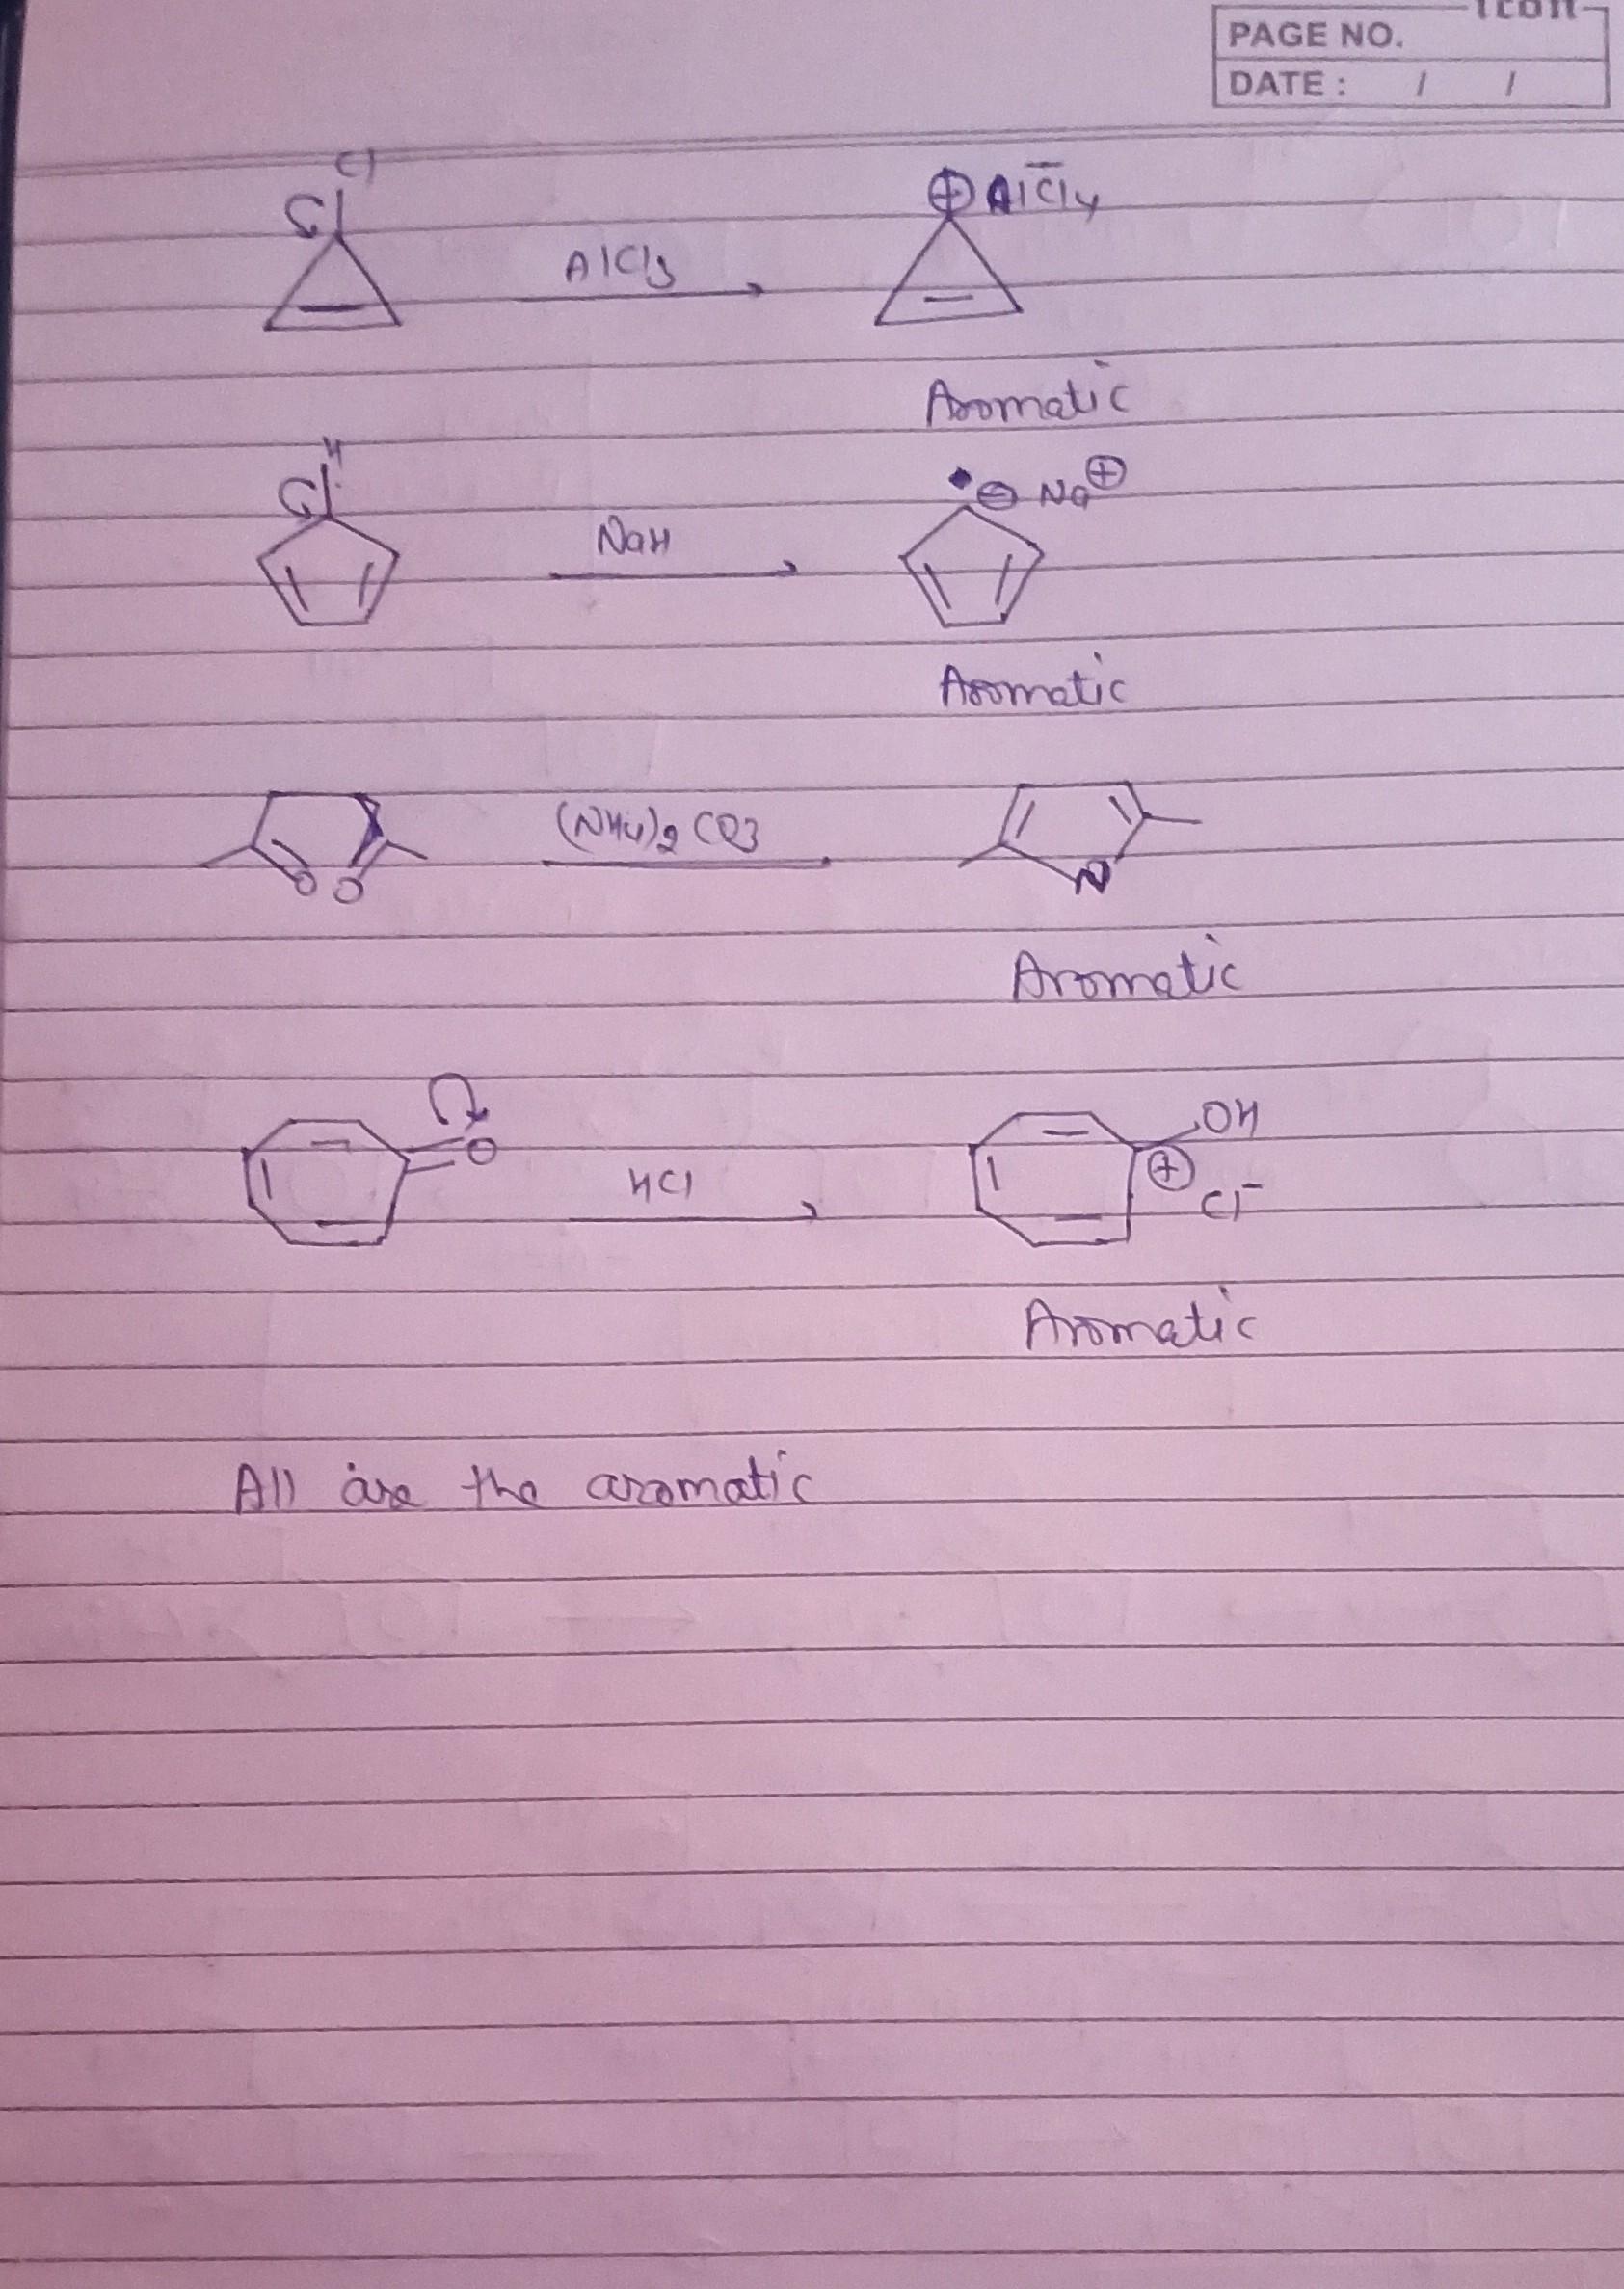 icon
PAGE NO.
DATE : / /
Cl
⊕ AlC̄l4
AlCl3
Aromatic
H
⊖ Na⊕
NaH
Aromatic
(NH4)2 CO3
O O
N
Aromatic
O
OH
HCl
⊕
Cl⁻
Aromatic
All are the aromatic